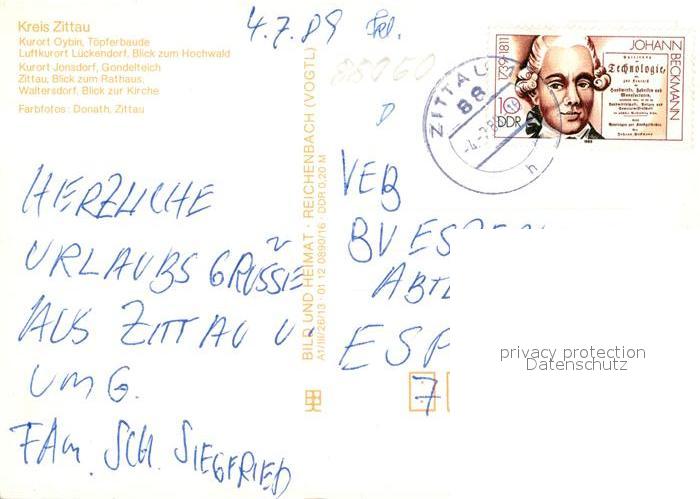 Kreis Zittau
Kurort Oybin, Töpferbaude
Luftkurort Lückendorf, Blick zum Hochwald
Kurort Jonsdorf, Gondelteich
Zittau, Blick zum Rathaus,
Waltersdorf, Blick zur Kirche
Farbfotos: Donath, Zittau
4.7.89
HERZLICHE
URLAUBSGRÜSSE
AUS ZITTAU U.
UMG.
FAM. SCH. SIEGFRIED
BILD UND HEIMAT · REICHENBACH (VOGTL)
A1/III/26/13 · 01 12 0890/16 · DDR 0,20 M
ZITTAU
88
h
1739-1811
JOHANN
BECKMANN
Technologie,
10
DDR
VEB
BV
ABT
ESP
7
privacy protection
Datenschutz